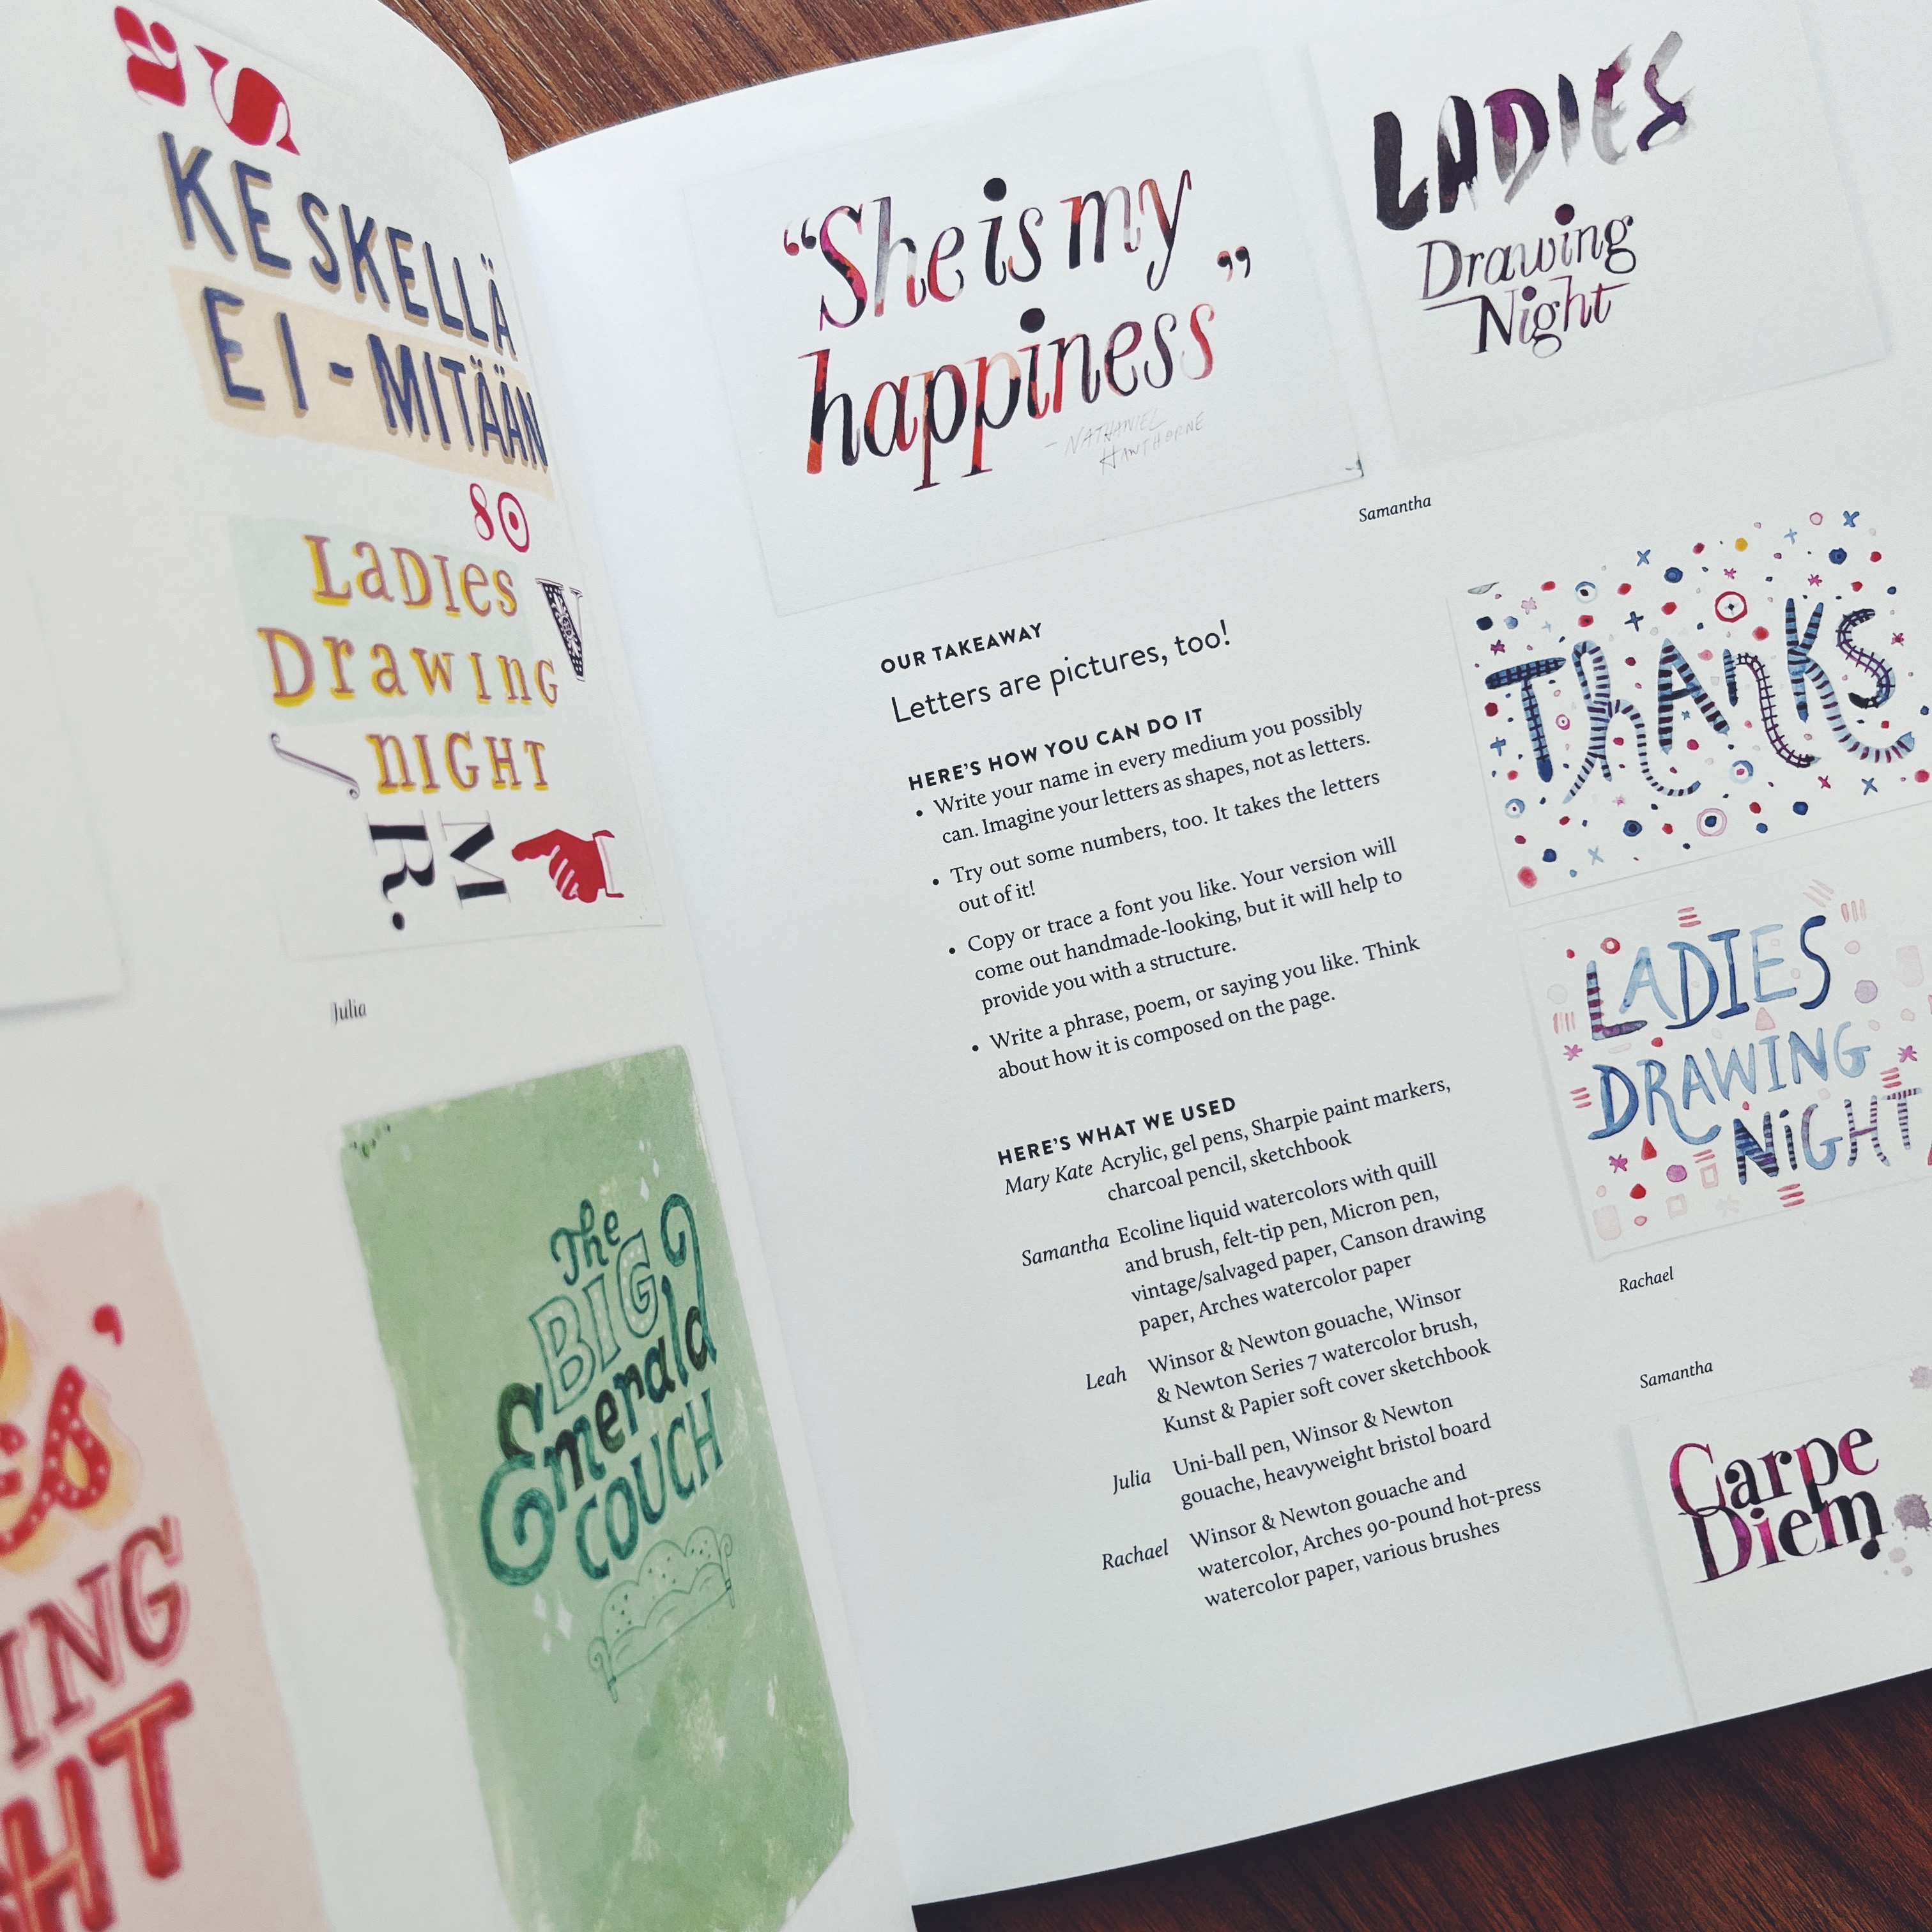 S
KESKELLÄ
EI-MITÄÄN
80
LaDIes
DrawIng
nIGHT
V
M
R.
Julia
The
BIG
Emerald
COUCH
ING
HT
“She is my
happiness”
- NATHANIEL
HAWTHORNE
LADIES
Drawing
Night
Samantha
OUR TAKEAWAY
Letters are pictures, too!
HERE’S HOW YOU CAN DO IT
• Write your name in every medium you possibly
can. Imagine your letters as shapes, not as letters.
• Try out some numbers, too. It takes the letters
out of it!
• Copy or trace a font you like. Your version will
come out handmade-looking, but it will help to
provide you with a structure.
• Write a phrase, poem, or saying you like. Think
about how it is composed on the page.
HERE’S WHAT WE USED
Mary Kate Acrylic, gel pens, Sharpie paint markers,
charcoal pencil, sketchbook
Samantha Ecoline liquid watercolors with quill
and brush, felt-tip pen, Micron pen,
vintage/salvaged paper, Canson drawing
paper, Arches watercolor paper
Leah Winsor & Newton gouache, Winsor
& Newton Series 7 watercolor brush,
Kunst & Papier soft cover sketchbook
Julia Uni-ball pen, Winsor & Newton
gouache, heavyweight bristol board
Rachael Winsor & Newton gouache and
watercolor, Arches 90-pound hot-press
watercolor paper, various brushes
ThAnKS
LADIES
DRAWING
NiGHT
Rachael
Samantha
Carpe
Diem